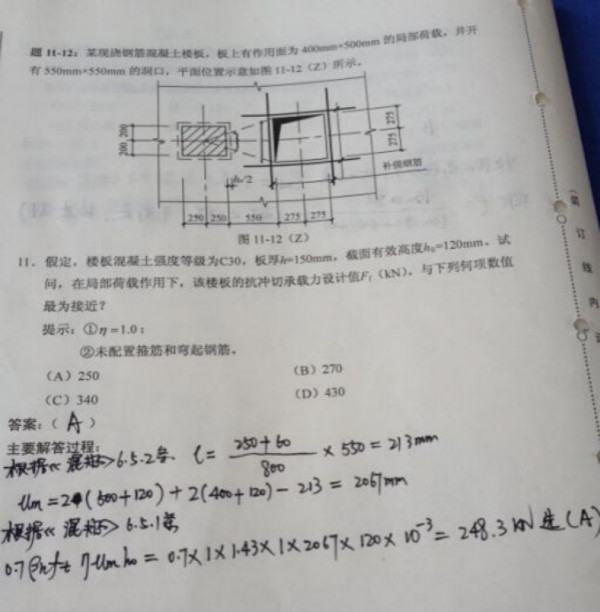 题 11-12：某现浇钢筋混凝土楼板，板上有作用面为 400mm×500mm 的局部荷载，并开
有 550mm×550mm 的洞口，平面位置示意如图 11-12（Z）所示。
200 200
275 275
补强钢筋
h₀/2
250 250 550 275 275
图 11-12（Z）
11．假定，楼板混凝土强度等级为C30，板厚h=150mm，截面有效高度h₀=120mm。试
问，在局部荷载作用下，该楼板的抗冲切承载力设计值Fₗ（kN），与下列何项数值
最为接近？
提示：①η=1.0；
②未配置箍筋和弯起钢筋。
（A）250 （B）270
（C）340 （D）430
答案：（ A ）
主要解答过程：
根据《混规》6.5.2条. l = (250+60)/800 × 550 = 213mm
Um = 2(500+120) + 2(400+120) - 213 = 2067mm
根据《混规》6.5.1条
0.7βhft ηUmh₀ = 0.7×1×1.43×1×2067×120×10⁻³ = 248.3 kN 选（A）
装 订 线 内